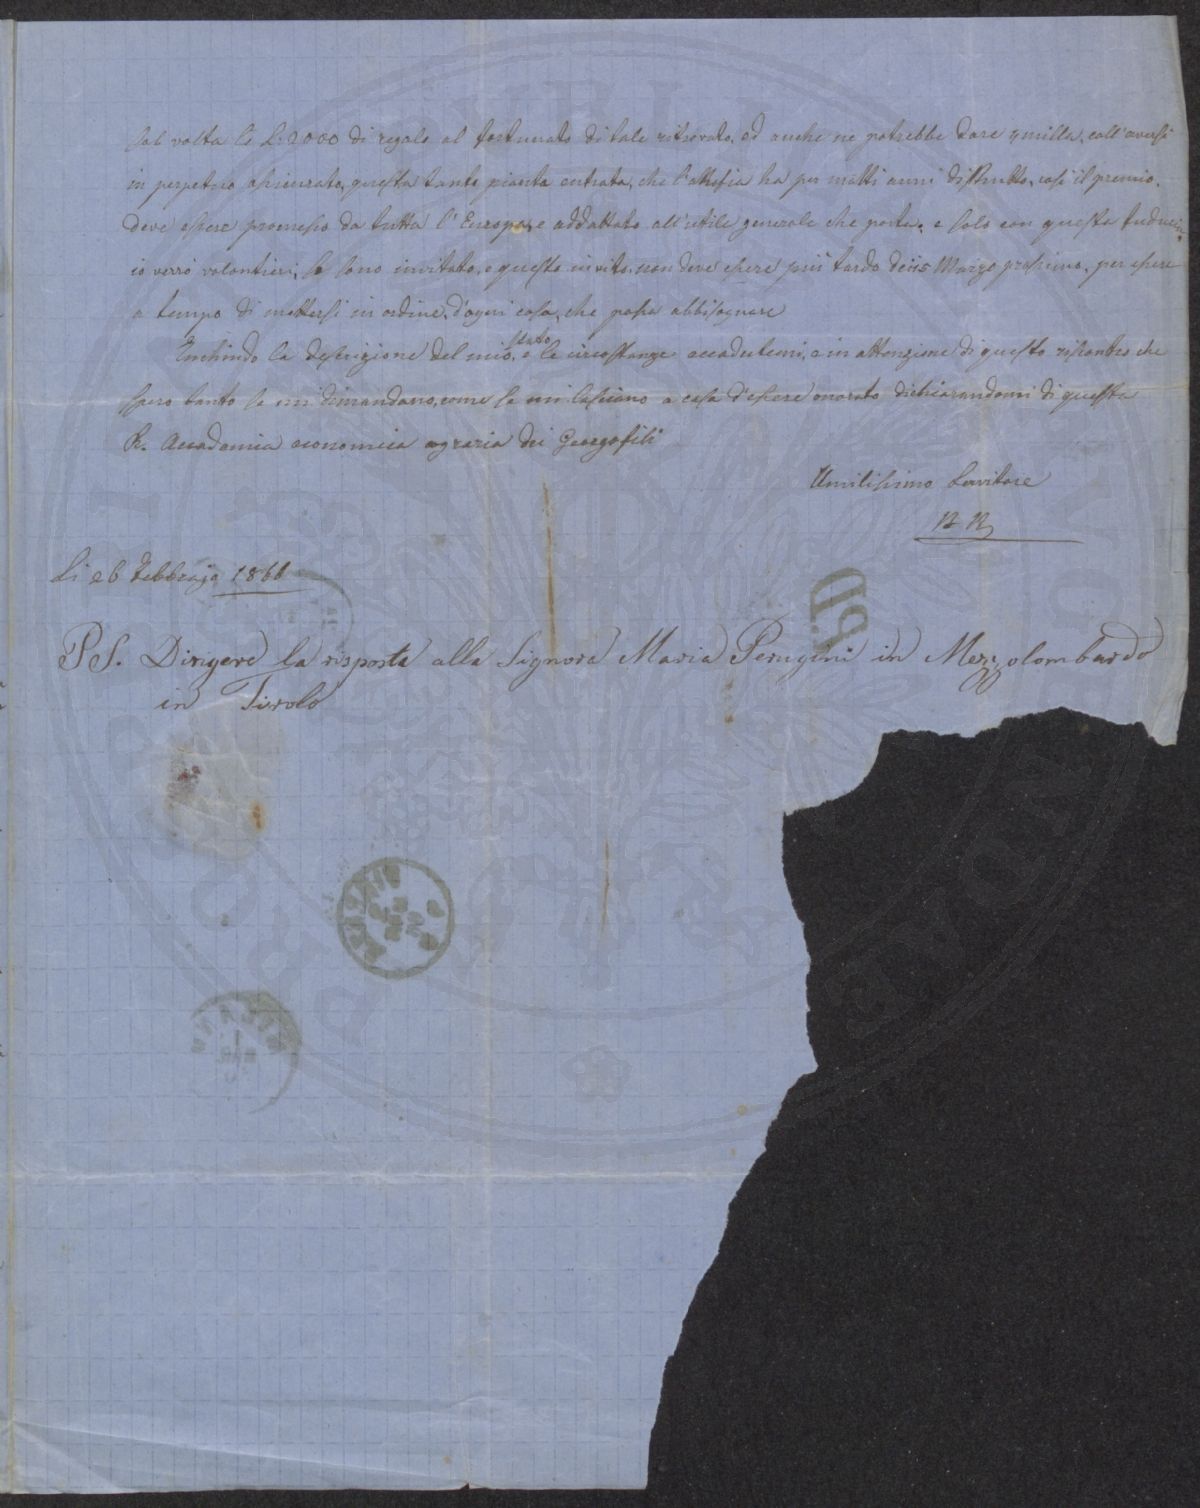 sol volta le L. 2000 di regalo al fortunato di tale ritrovato, ed anche ne potrebbe dare 4 milla, coll'aversi
in perpetuo assicurato, questa tante pianta entrata, che l'attofia ha per molti anni distrutto, così il premio
deve essere promesso da tutta l'Europa, e addattato all'utile generale che porta, e solo con questa
io verrò volontieri, se sono invitato, e questo invito, non deve essere più tardo dei 15 Marzo prossimo, per essere
a tempo di mettersi in ordine, d'ogni cosa, che possa abbisognare
Inchiudo la descrizione del mio stato, e le circostanze accadutemi, e in attenzione di questo riscontro che
spero tanto se mi dimandano, come se mi lasciano a casa d'essere onorato dichiarandomi di questa
R. Accademia economica agraria dei Georgofili
Umilissimo Servitore
N N
Li 26 Febbrajo 1866
PS. Dirigere la risposta alla Signora Maria Perugini in Mezzolombardo
in Tirolo
PD
FIRENZE
MILANO